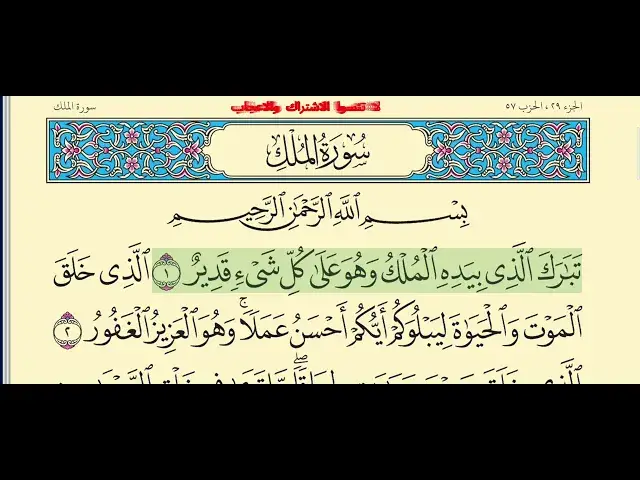 الجزء ٢٩، الحزب ٥٧
الاشتراك والاعجاب
سورة الملك
سُورَةُ المُلْكِ
بِسْمِ ٱللَّهِ ٱلرَّحْمَٰنِ ٱلرَّحِيمِ
تَبَٰرَكَ ٱلَّذِى بِيَدِهِ ٱلْمُلْكُ وَهُوَ عَلَىٰ كُلِّ شَىْءٍ قَدِيرٌ ١ ٱلَّذِى خَلَقَ
ٱلْمَوْتَ وَٱلْحَيَوٰةَ لِيَبْلُوَكُمْ أَيُّكُمْ أَحْسَنُ عَمَلًا ۚ وَهُوَ ٱلْعَزِيزُ ٱلْغَفُورُ ٢